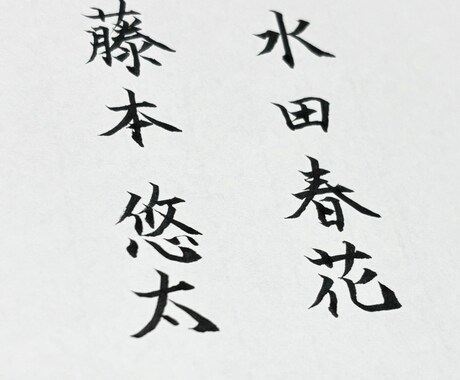 水田春花
藤本悠太